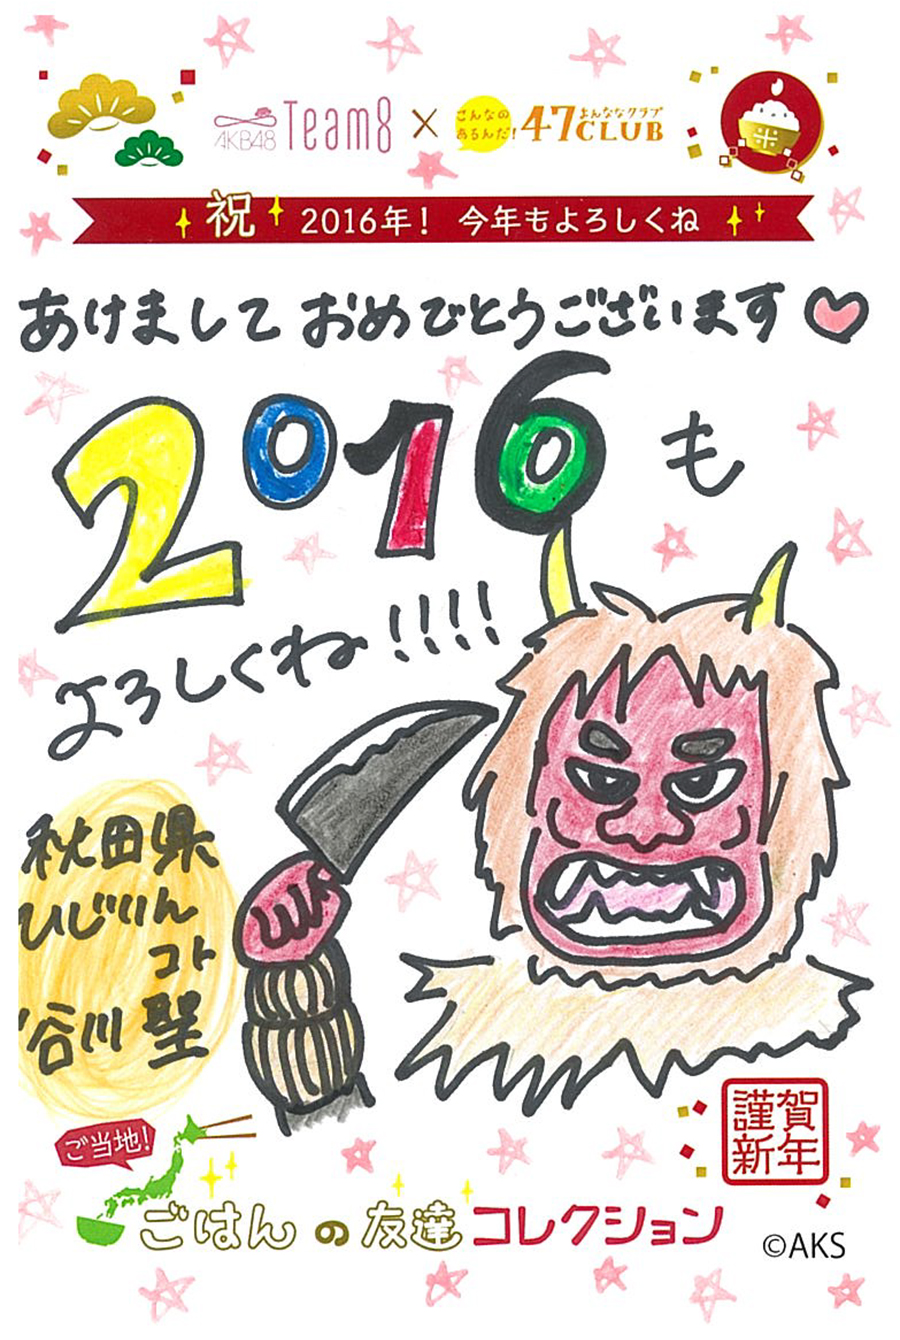 AKB48 Team8 × こんなのあるんだ! 47CLUB よんななクラブ
米
祝 2016年! 今年もよろしくね
あけまして おめでとうございます♡
2016も
よろしくね!!!!
秋田県
ひじりん
コト
谷川 聖
ご当地!
ごはんの友達コレクション
謹賀
新年
©AKS